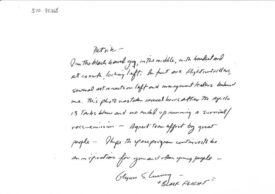 Patrick -
I'm the black haired guy, in the middle, with headset and
at console, looking left. In front are flight controllers,
several astronauts on left and management leaders behind
me. This photo was taken several hours after the Apollo
13 tanks blew and we ended up running a survival/
rescue mission - A great team effort by great
people - I hope the space program continues to be
an inspiration for you and other young people -
Glynn S. Lunney -
"BLACK FLIGHT"